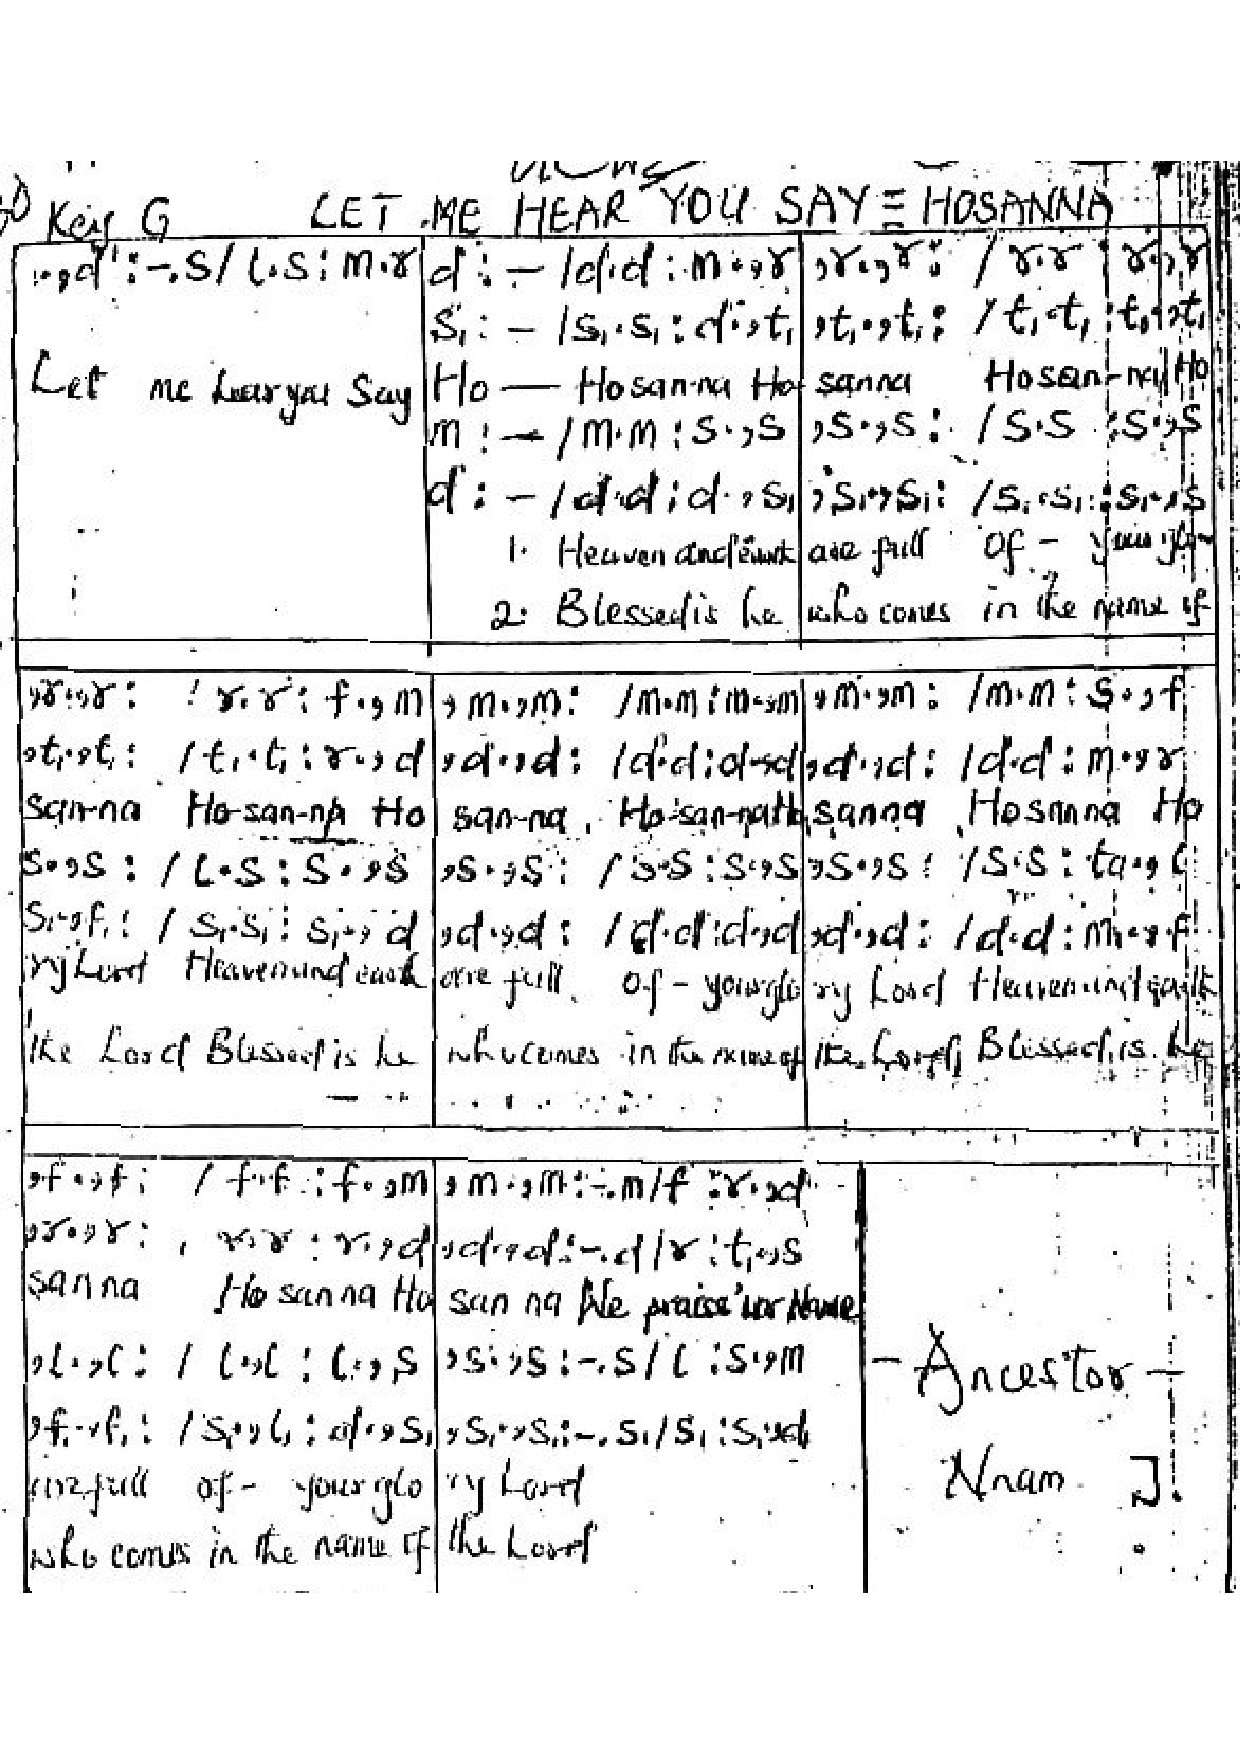 Key G LET ME HEAR YOU SAY = HOSANNA
.,d' :-.s / l.s : m.r | d : - / d.d : m.,r | ,r.,r : / r.r : r.,r
s₁ : - / s₁.s₁ : d.,t₁ | ,t₁.,t₁ : / t₁.t₁ : t₁.,t₁
Let me hear you Say | Ho — Hosan-na Ho | sanna Hosan-na Ho
m : - / m.m : s.,s | ,s.,s : / s.s : s.,s
d : - / d.d : d.,s₁ | ,s₁.,s₁ : / s₁.s₁ : s₁.,s
1. Heaven and earth | are full of - your glo-
2. Blessed is he | who comes in the name of
,r.,r : / r.r : f.,m | ,m.,m : / m.m : m.,m | ,m.,m : / m.m : s.,f
,t₁.,t₁ : / t₁.t₁ : r.,d | ,d.,d : / d.d : d.,d | ,d.,d : / d.d : m.,r
san-na Ho-san-na Ho | san-na Ho-san-na Ho | sanna Hosanna Ho
s.,s : / l.s : s.,s | ,s.,s : / s.s : s.,s | ,s.,s : / s.s : ta.,l
s₁.,f₁ : / s₁.s₁ : s₁.,d | ,d.,d : / d.d : d.,d | ,d.,d : / d.d : m.,f
ry Lord Heaven and earth | are full of - your glo | ry Lord Heaven and earth
the Lord Blessed is he | who comes in the name of | the Lord, Blessed is he
,f.,f : / f.f : f.,m | ,m.,m :-.m / f : r.,d
,r.,r : r.r : r.,d | ,d.,d :-.d / r : t₁.,s
sanna Ho sanna Ho | san na We praise Name
,l.,l : / l.,l : l.,s | ,s.,s :-.s / l : s.,m
- Ancestor -
,f₁.,f₁ : / s₁.,l₁ : d.,s₁ | ,s₁.,s₁ :-.s₁ / s₁ : s₁.,d
Nnam J.
are full of - your glo | ry Lord
who comes in the name of | the Lord